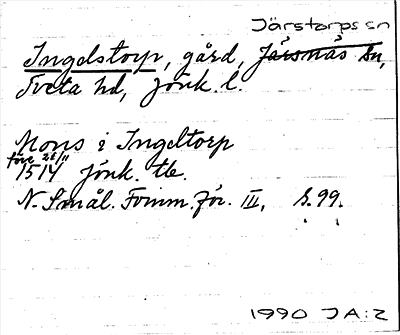 Järstorps sn
Ingelstorp, gård, Järsnäs sn,
Tveta hd, Jönk. l.
Mons i Ingeltorp
före 28/11
1514 Jönk. tb.
N. Smål. Fornm.för. III, s. 99.
1990 JA:2